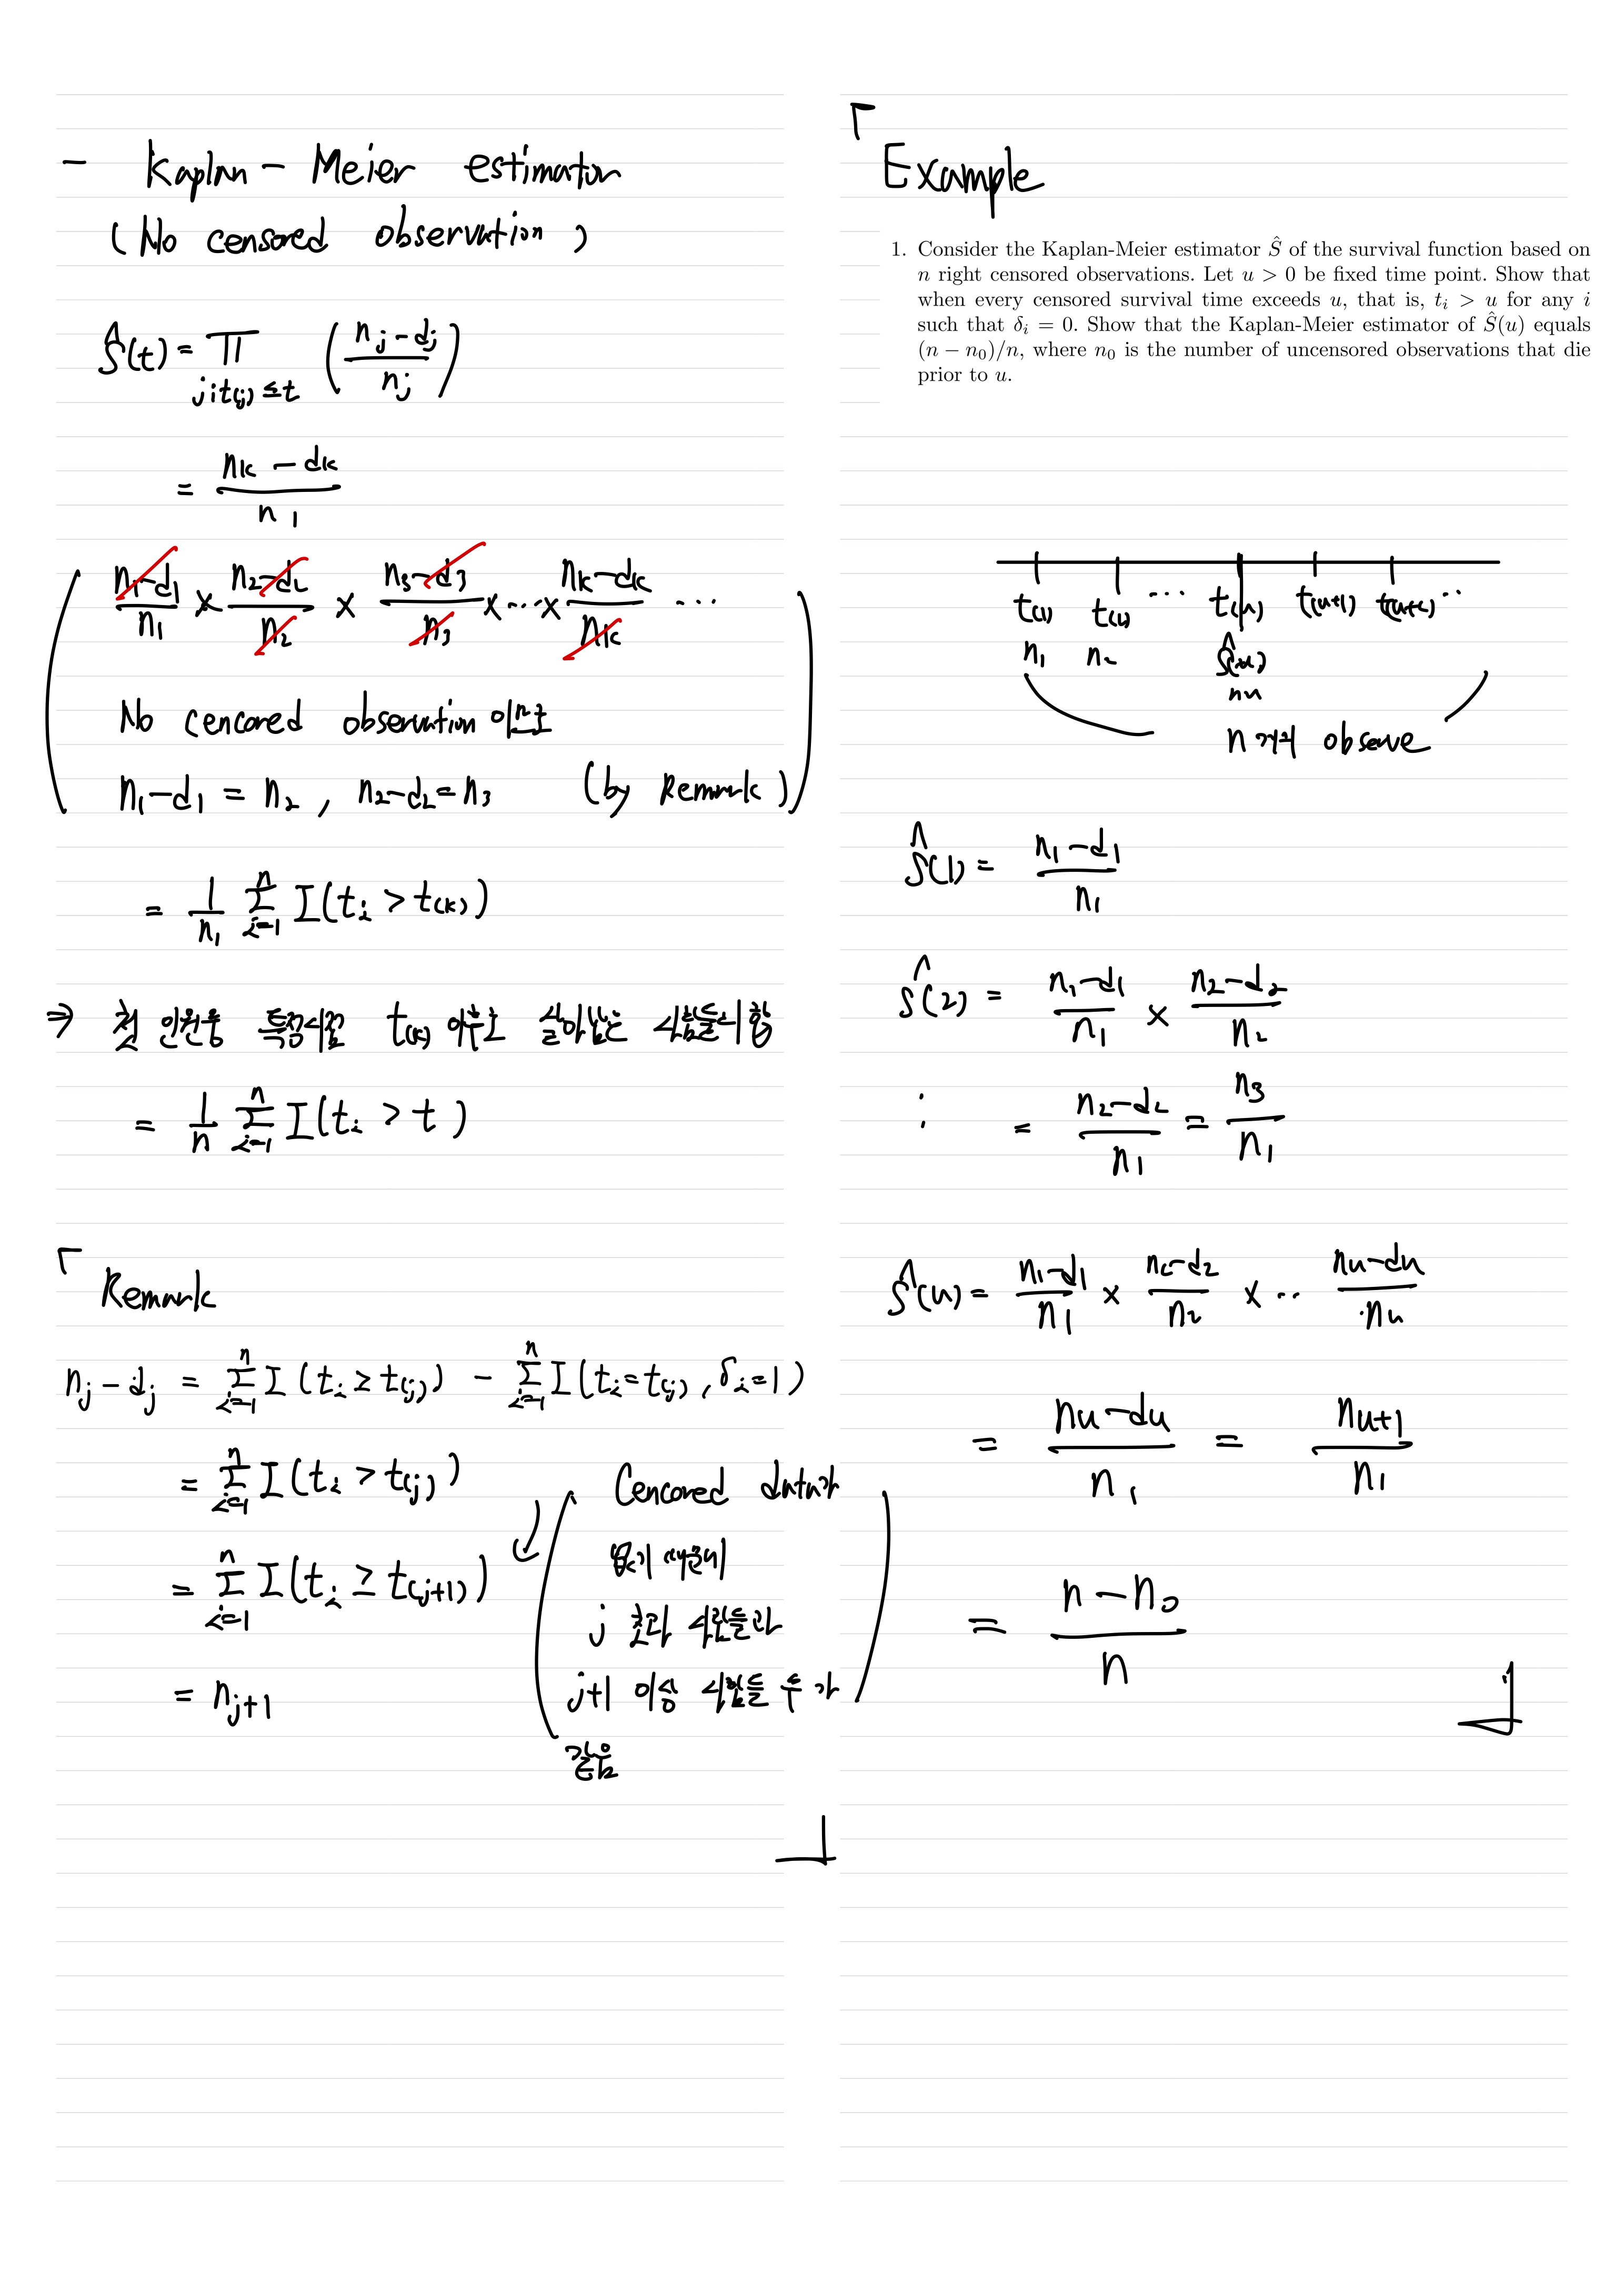 - Kaplan - Meier estimator
(No censored observation)
Ŝ(t) = ∏_{j: t(j) ≤ t} ( (n_j - d_j) / n_j )
= (n_k - d_k) / n_1
( (n_1 - d_1)/n_1 × (n_2 - d_2)/n_2 × (n_3 - d_3)/n_3 × ... × (n_k - d_k)/n_k ...
No cencored observation 이므로
n_1 - d_1 = n_2 , n_2 - d_2 = n_3 (by Remark) )
= 1/n_1 Σ_{i=1}^{n} I(t_i > t_(k))
⇒ 첫 인원중 특정시점 t_(k) 이후로 살아남은 사람들의 합
= 1/n Σ_{i=1}^{n} I(t_i > t)
「 Remark
n_j - d_j = Σ_{i=1}^{n} I(t_i ≥ t_(j)) - Σ_{i=1}^{n} I(t_i = t_(j), δ_i = 1)
= Σ_{i=1}^{n} I(t_i > t_(j))
= Σ_{i=1}^{n} I(t_i ≥ t_(j+1))
= n_{j+1}
( Cencored data가
없기 때문에
j 초과 사람들과
j+1 이상 사람들 수가 )
같음
」
「 Example
1. Consider the Kaplan-Meier estimator Ŝ of the survival function based on
n right censored observations. Let u > 0 be fixed time point. Show that
when every censored survival time exceeds u, that is, t_i > u for any i
such that δ_i = 0. Show that the Kaplan-Meier estimator of Ŝ(u) equals
(n − n_0)/n, where n_0 is the number of uncensored observations that die
prior to u.
t_(1) t_(2) ... t_(u) t_(u+1) t_(u+2) ...
n_1 n_2 Ŝ(u)
n_u
n개의 observe
Ŝ(1) = (n_1 - d_1) / n_1
Ŝ(2) = (n_1 - d_1)/n_1 × (n_2 - d_2)/n_2
: = (n_2 - d_2)/n_1 = n_3/n_1
Ŝ(u) = (n_1 - d_1)/n_1 × (n_2 - d_2)/n_2 × ... (n_u - d_u)/n_u
= (n_u - d_u)/n_1 = n_{u+1}/n_1
= (n - n_0)/n
」